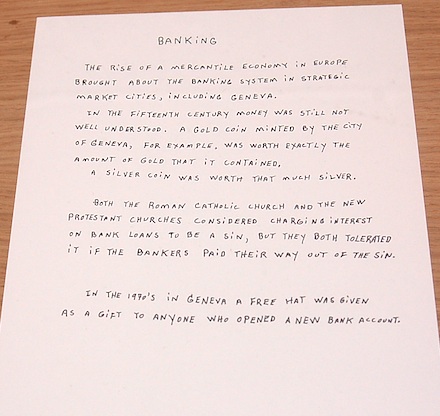 BANKING
THE RISE OF A MERCANTILE ECONOMY IN EUROPE
BROUGHT ABOUT THE BANKING SYSTEM IN STRATEGIC
MARKET CITIES, INCLUDING GENEVA.
IN THE FIFTEENTH CENTURY MONEY WAS STILL NOT
WELL UNDERSTOOD. A GOLD COIN MINTED BY THE CITY
OF GENEVA, FOR EXAMPLE, WAS WORTH EXACTLY THE
AMOUNT OF GOLD THAT IT CONTAINED.
A SILVER COIN WAS WORTH THAT MUCH SILVER.
BOTH THE ROMAN CATHOLIC CHURCH AND THE NEW
PROTESTANT CHURCHES CONSIDERED CHARGING INTEREST
ON BANK LOANS TO BE A SIN, BUT THEY BOTH TOLERATED
IT IF THE BANKERS PAID THEIR WAY OUT OF THE SIN.
IN THE 1970'S IN GENEVA A FREE HAT WAS GIVEN
AS A GIFT TO ANYONE WHO OPENED A NEW BANK ACCOUNT.